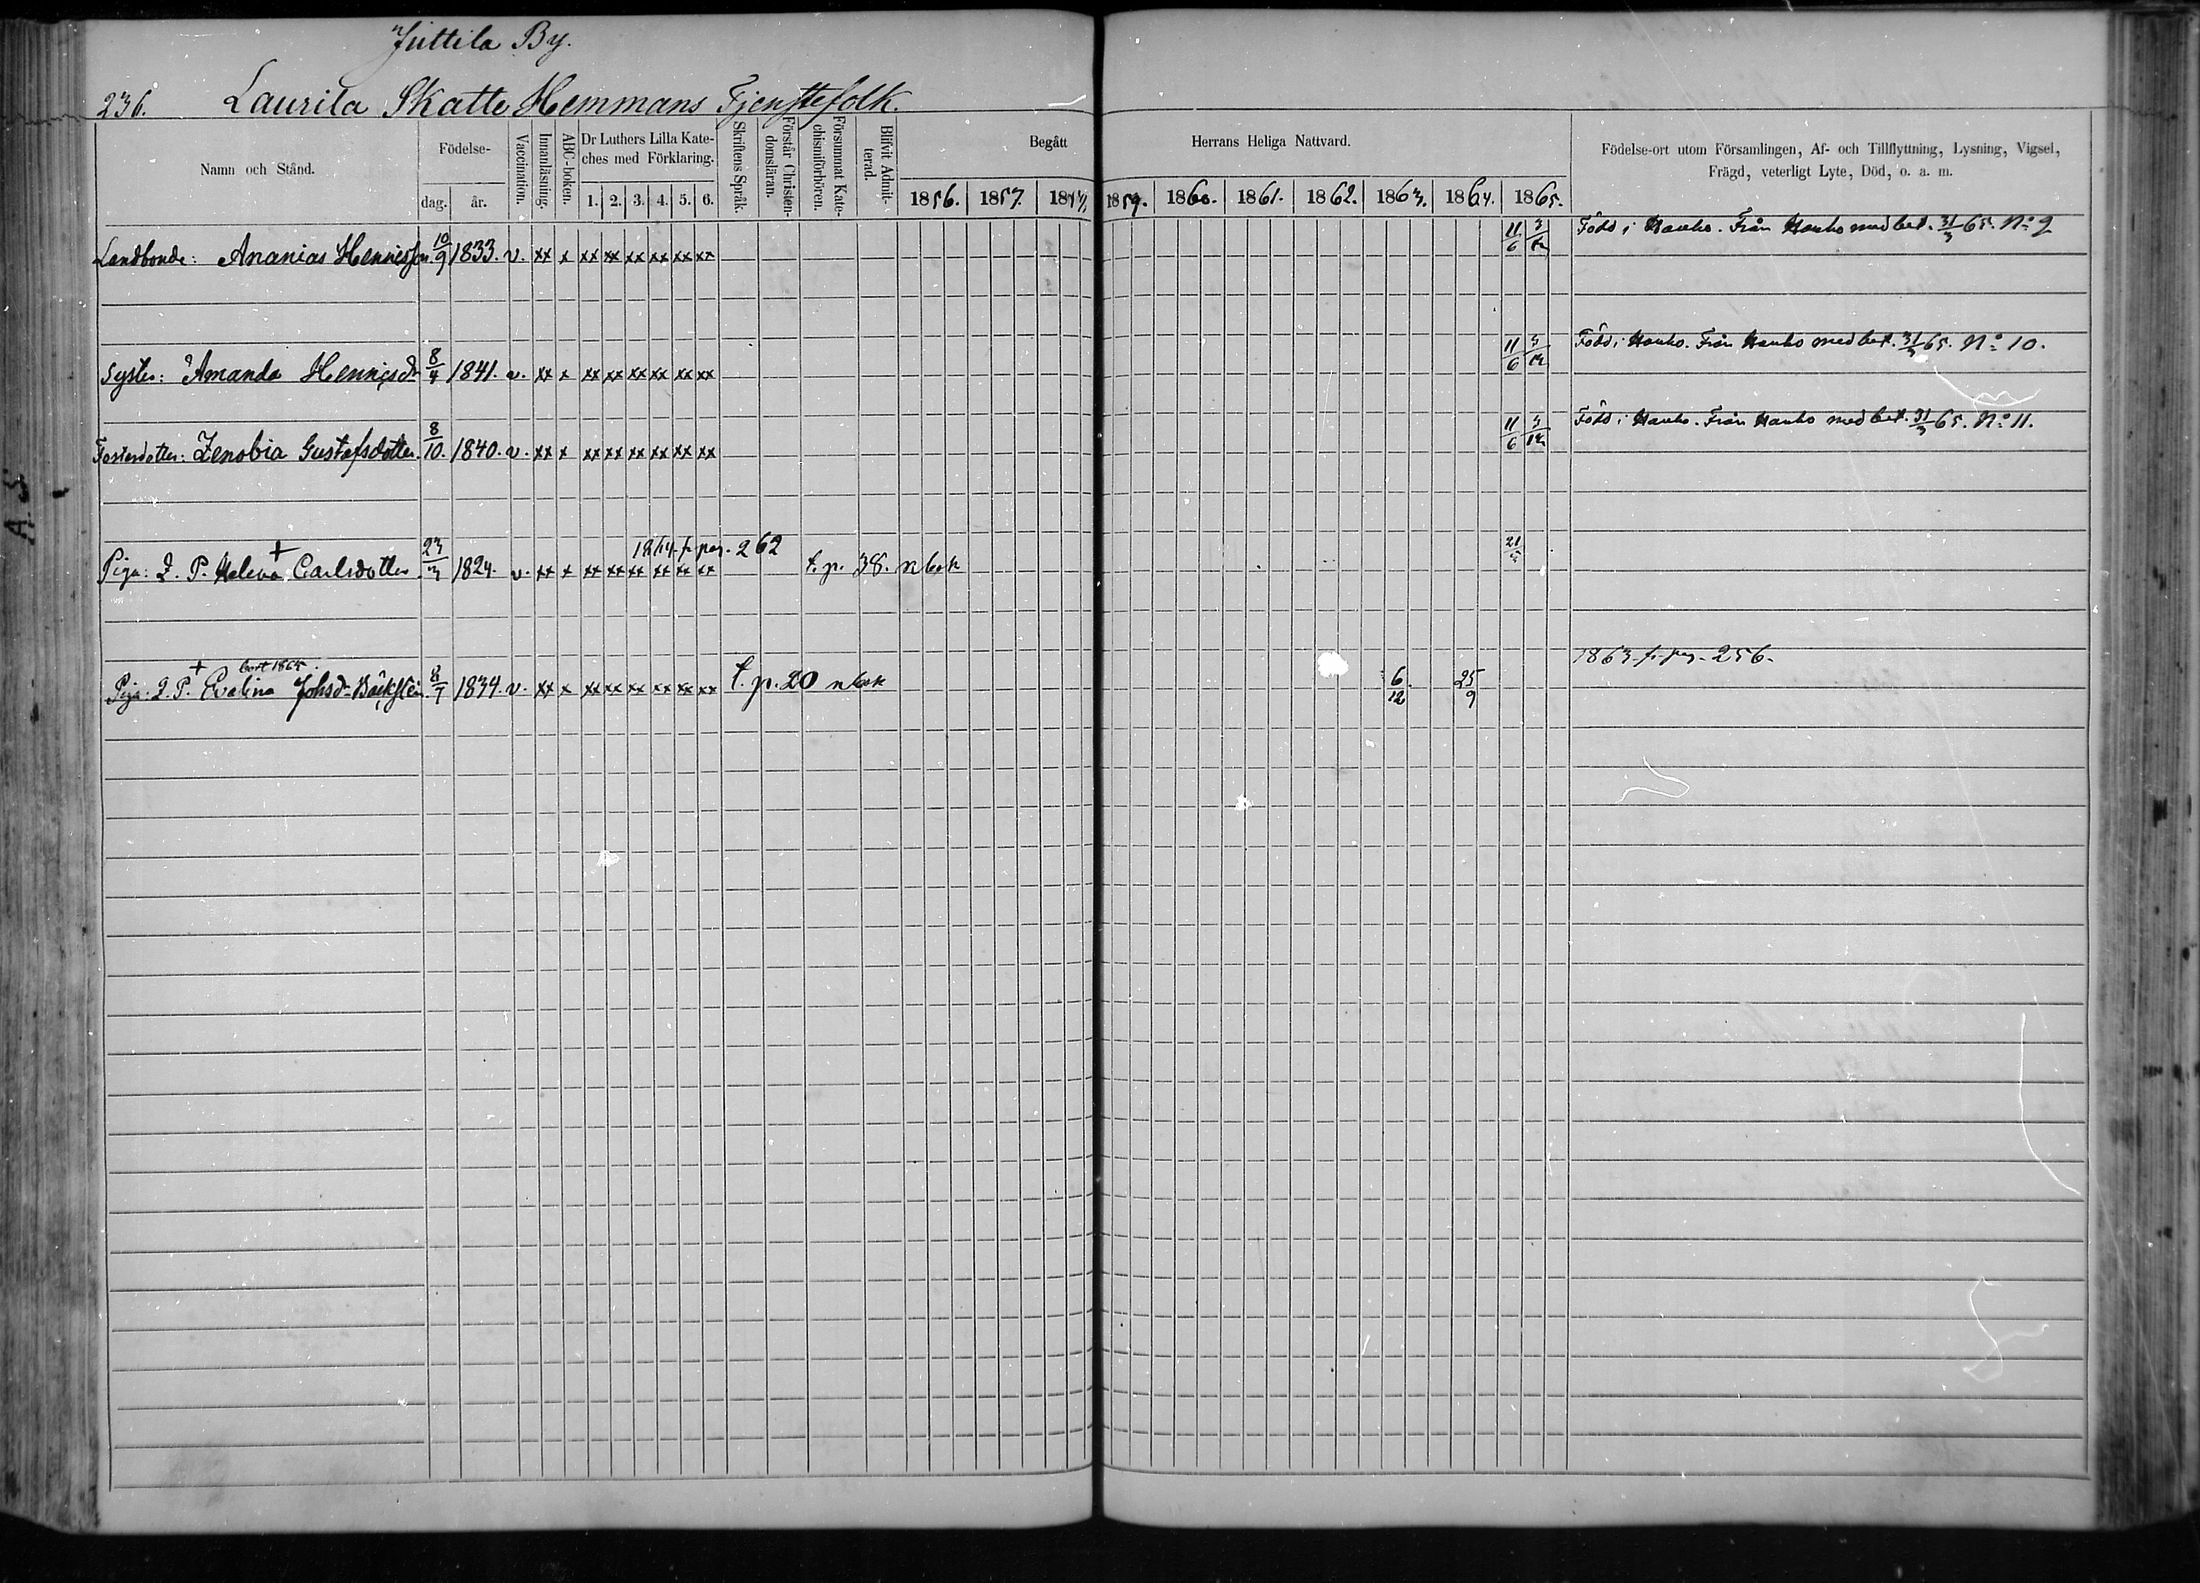 Juttila By.
236. Laurila Skatte Hemmans Tjenstefolk.
Namn och Stånd. Födelse- dag. år. Vaccination. Innanläsning. ABC-boken. Dr Luthers Lilla Kateches med Förklaring. 1. 2. 3. 4. 5. 6. Skriftens Språk. Förstår Christendomsläran. Försummat Katechismiförhören. Blifvit Admitterad. Begått Herrans Heliga Nattvard. Födelse-ort utom Församlingen, Af- och Tillflyttning, Lysning, Vigsel, Frägd, veterligt Lyte, Död, o. a. m.
1856. 1857. 1859. 1860. 1861. 1862. 1863. 1864. 1865.
Landbonde: Ananias Hennisson 10/9 1833. v. xx x xx xx xx xx xx xx 11/6 Född i Hauho. Från Hauho med bet. 31/3 65. No 9
Syster: Amanda Hennisdr 8/4 1841. v. xx x xx xx xx xx xx xx 11/6 Född i Hauho. Från Hauho med bet. 31/3 65. No 10.
Fosterdotter: Zenobia Gustafsdotter. 8/10. 1840. v. xx x xx xx xx xx xx xx 11/6 Född i Hauho. Från Hauho med bet. 31/3 65. No 11.
1864 fr. pag. 262
Piga: I. P. Helena Carlsdotter 23/3 1824. v. xx x xx xx xx xx xx xx t. p. 38. n bok 21/5
bort 1865. 1863 fr. pag. 256.
Piga: I. P. Evelina Johsdr Bäcksten 8/7 1834. v. xx x xx xx xx xx xx xx t. p. 20 n bok 6/12 25/9